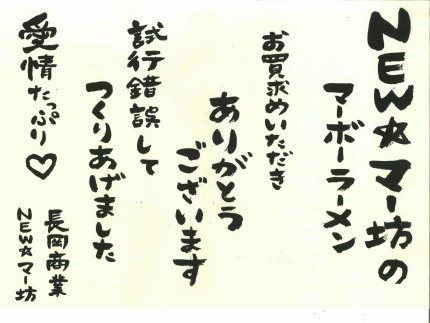 NEW☆マー坊の
マーボーラーメン
お買求めいただき
ありがとう
ございます
試行錯誤して
つくりあげました
愛情たっぷり♡
長岡商業
NEW☆マー坊